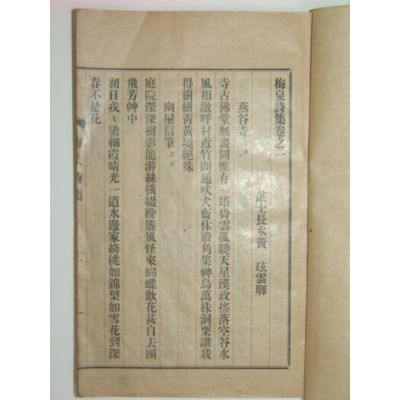 梅泉詩集卷之一
進士長水黃 玹雲卿
燕谷寺
寺古佛堂無畫圖惟存一塔倚雲孤曉天星漢政搖落空谷水
風相激呼村近竹間通吠犬齋休殿角集神烏萬株洞栗誰栽
得樹樹靑黃境絕殊
幽屋信筆
庭院深深樹影籠游絲橫綴晩簷風怪來蝴蝶欺花甚自去團
飛芳艸中
初日戎〻染綺霞晴光一道水邊家緋桃如錦梨如雪花到深
春不是花